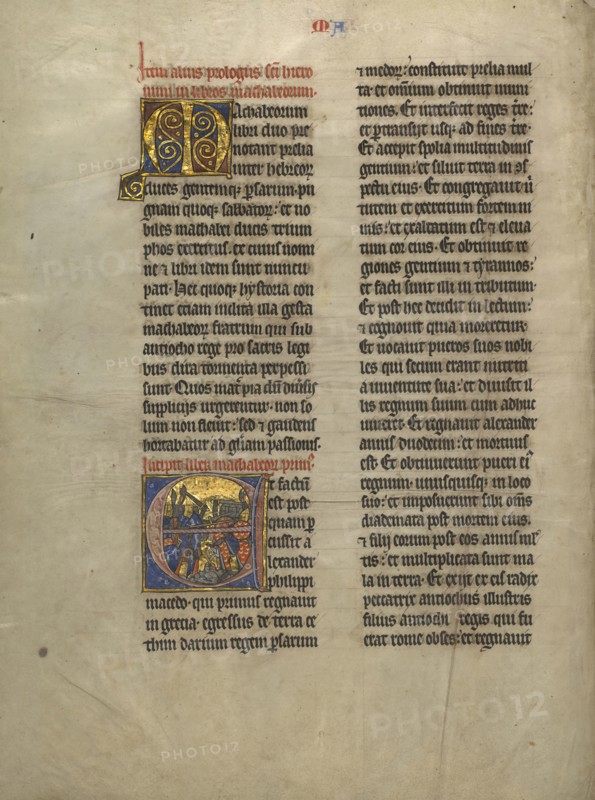 MA
Item alius prologus sci hiero
nimi in libros machabeorum.
Machabeorum
libri duo pre
notant prelia
inter hebreor
duces gentemq; psarum. pu
gnam quoq; sabbator: et no
biles machabei ducis trium
phos exercitus. ex cuius nomi
ne & libri idem sunt nuncu
pati. Hec quoq; hystoria con
tinet etiam inclita illa gesta
machabeor fratrum qui sub
antiocho rege pro sacris legi
bus dira tormenta perpessi
sunt. Quos mat pia dum diuersis
supplicijs urgerentur. non so
lum non fleuit: sed & gaudens
hortabatur ad gliam passionis.
Incipit liber machabeor primus
Et factu
est post
quam p
cussit a
lexander
philippi
macedo. qui primus regnauit
in grecia. egressus de terra ce
thim darium regem psarum
& medor: constituit prelia mul
ta. et omnium obtinuit muni
tiones. Et interfecit reges tre:
et ptransiit usq; ad fines tre.
Et accepit spolia multitudinis
gentium: et siluit terra in cons
pectu eius. Et congregauit uir
tutem et exercitum fortem ni
mis: et exaltatum est & eleua
tum cor eius. Et obtinuit re
giones gentium & tyrannos:
et facti sunt illi in tributum.
Et post hec decidit in lectum:
& cognouit quia moreretur.
Et uocauit pueros suos nobi
les qui secum erant nutriti
a iuuentute sua: et diuisit il
lis regnum suum cum adhuc
uiueret. Et regnauit alexander
annis duodecim: et mortuus
est. Et obtinuerunt pueri ei
regnum. unusquisq; in loco
suo: et imposuerunt sibi oms
diademata post mortem eius.
& filij eorum post eos annis mul
tis: et multiplicata sunt ma
la in terra. Et exijt ex eis radix
peccatrix antiochus illustris
filius antiochi regis qui fu
erat rome obses: et regnauit
PHOTO12